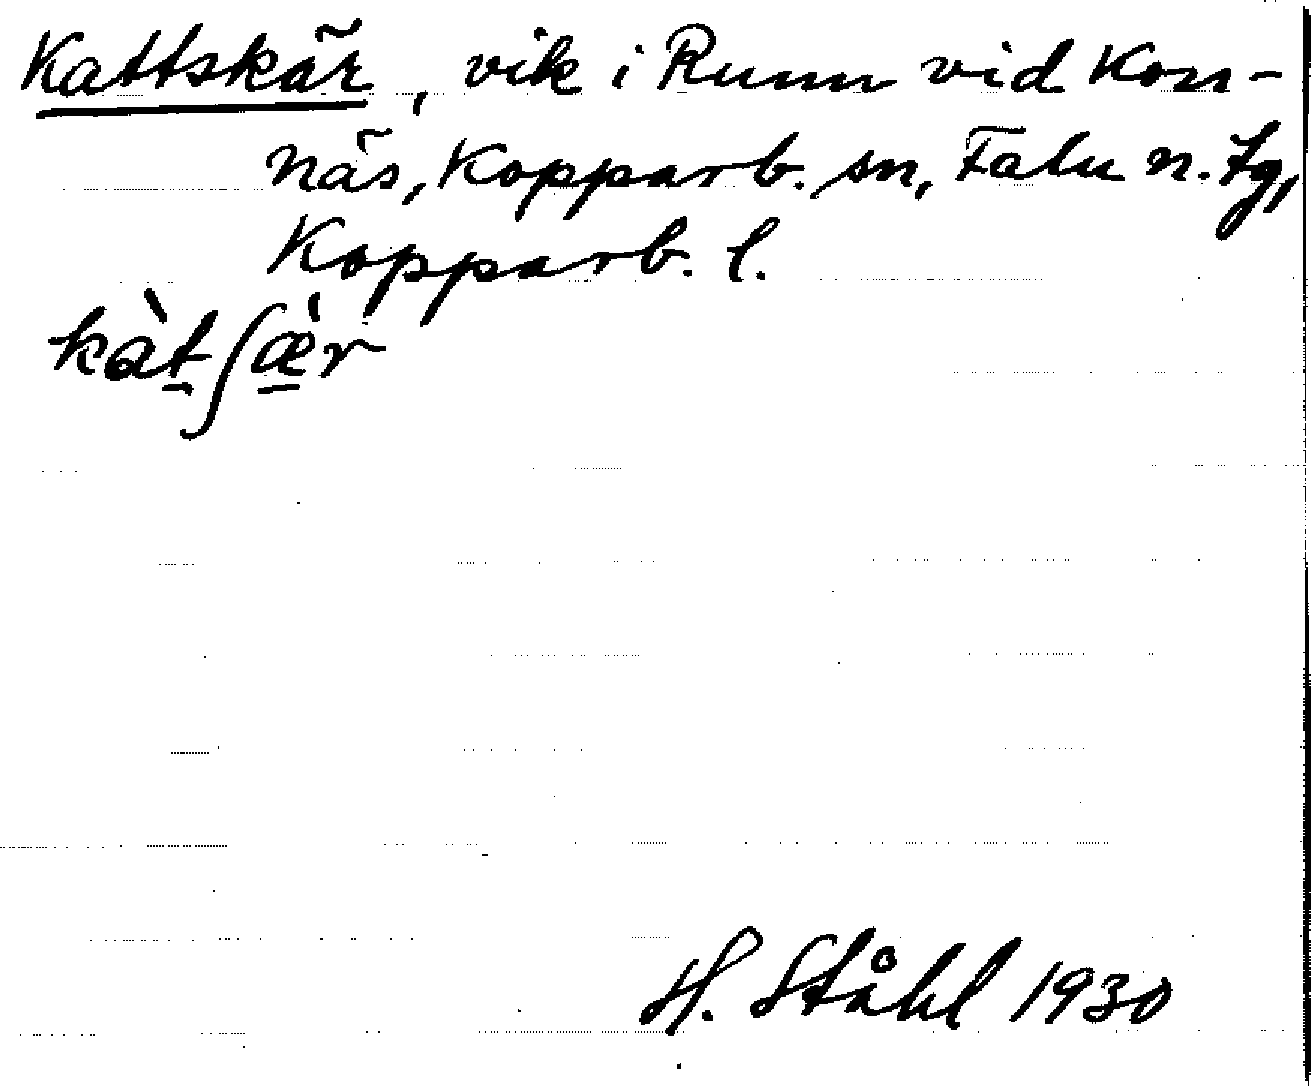 Kattskär, vik i Runn vid Kors-
näs, Kopparb. sn, Falu n. tg,
Kopparb. l.
kàt̠ʃæ̠̀r
H. Ståhl 1930